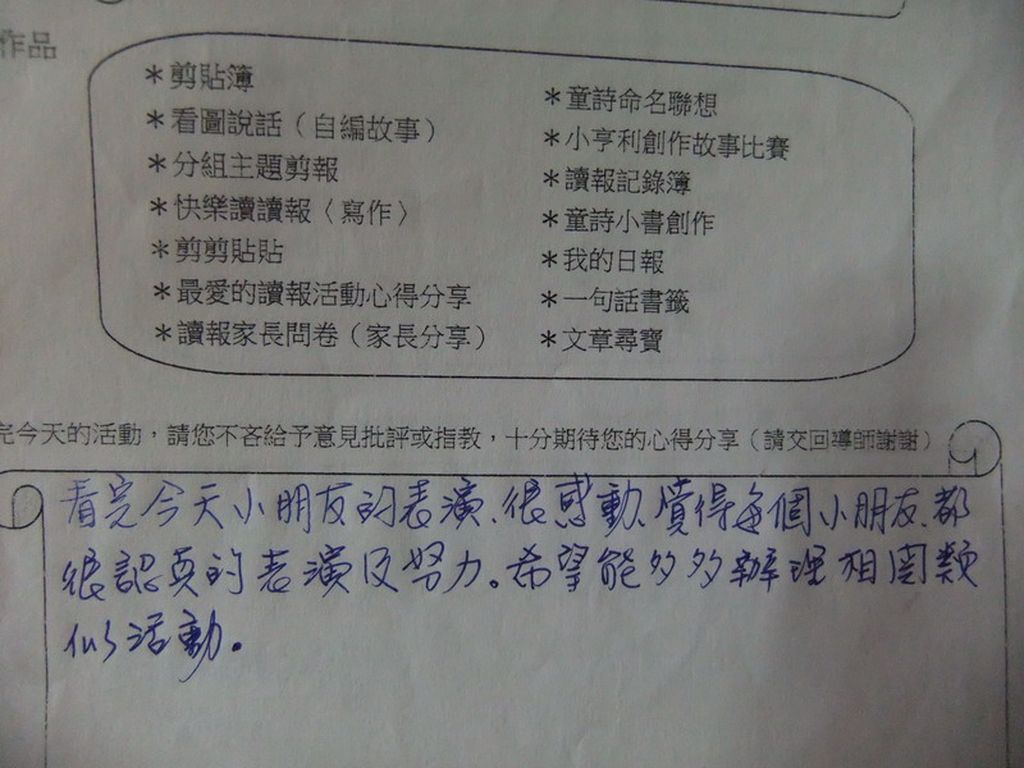 作品
＊剪貼簿
＊看圖說話（自編故事）
＊分組主題剪報
＊快樂讀讀報〈寫作〉
＊剪剪貼貼
＊最愛的讀報活動心得分享
＊讀報家長問卷（家長分享）
＊童詩命名聯想
＊小亨利創作故事比賽
＊讀報記錄簿
＊童詩小書創作
＊我的日報
＊一句話書籤
＊文章尋寶
完今天的活動，請您不吝給予意見批評或指教，十分期待您的心得分享（請交回導師謝謝）
看完今天小朋友的表演、很感動、覺得每個小朋友、都
很認真的表演及努力。希望能多多辦理相關類
似活動。